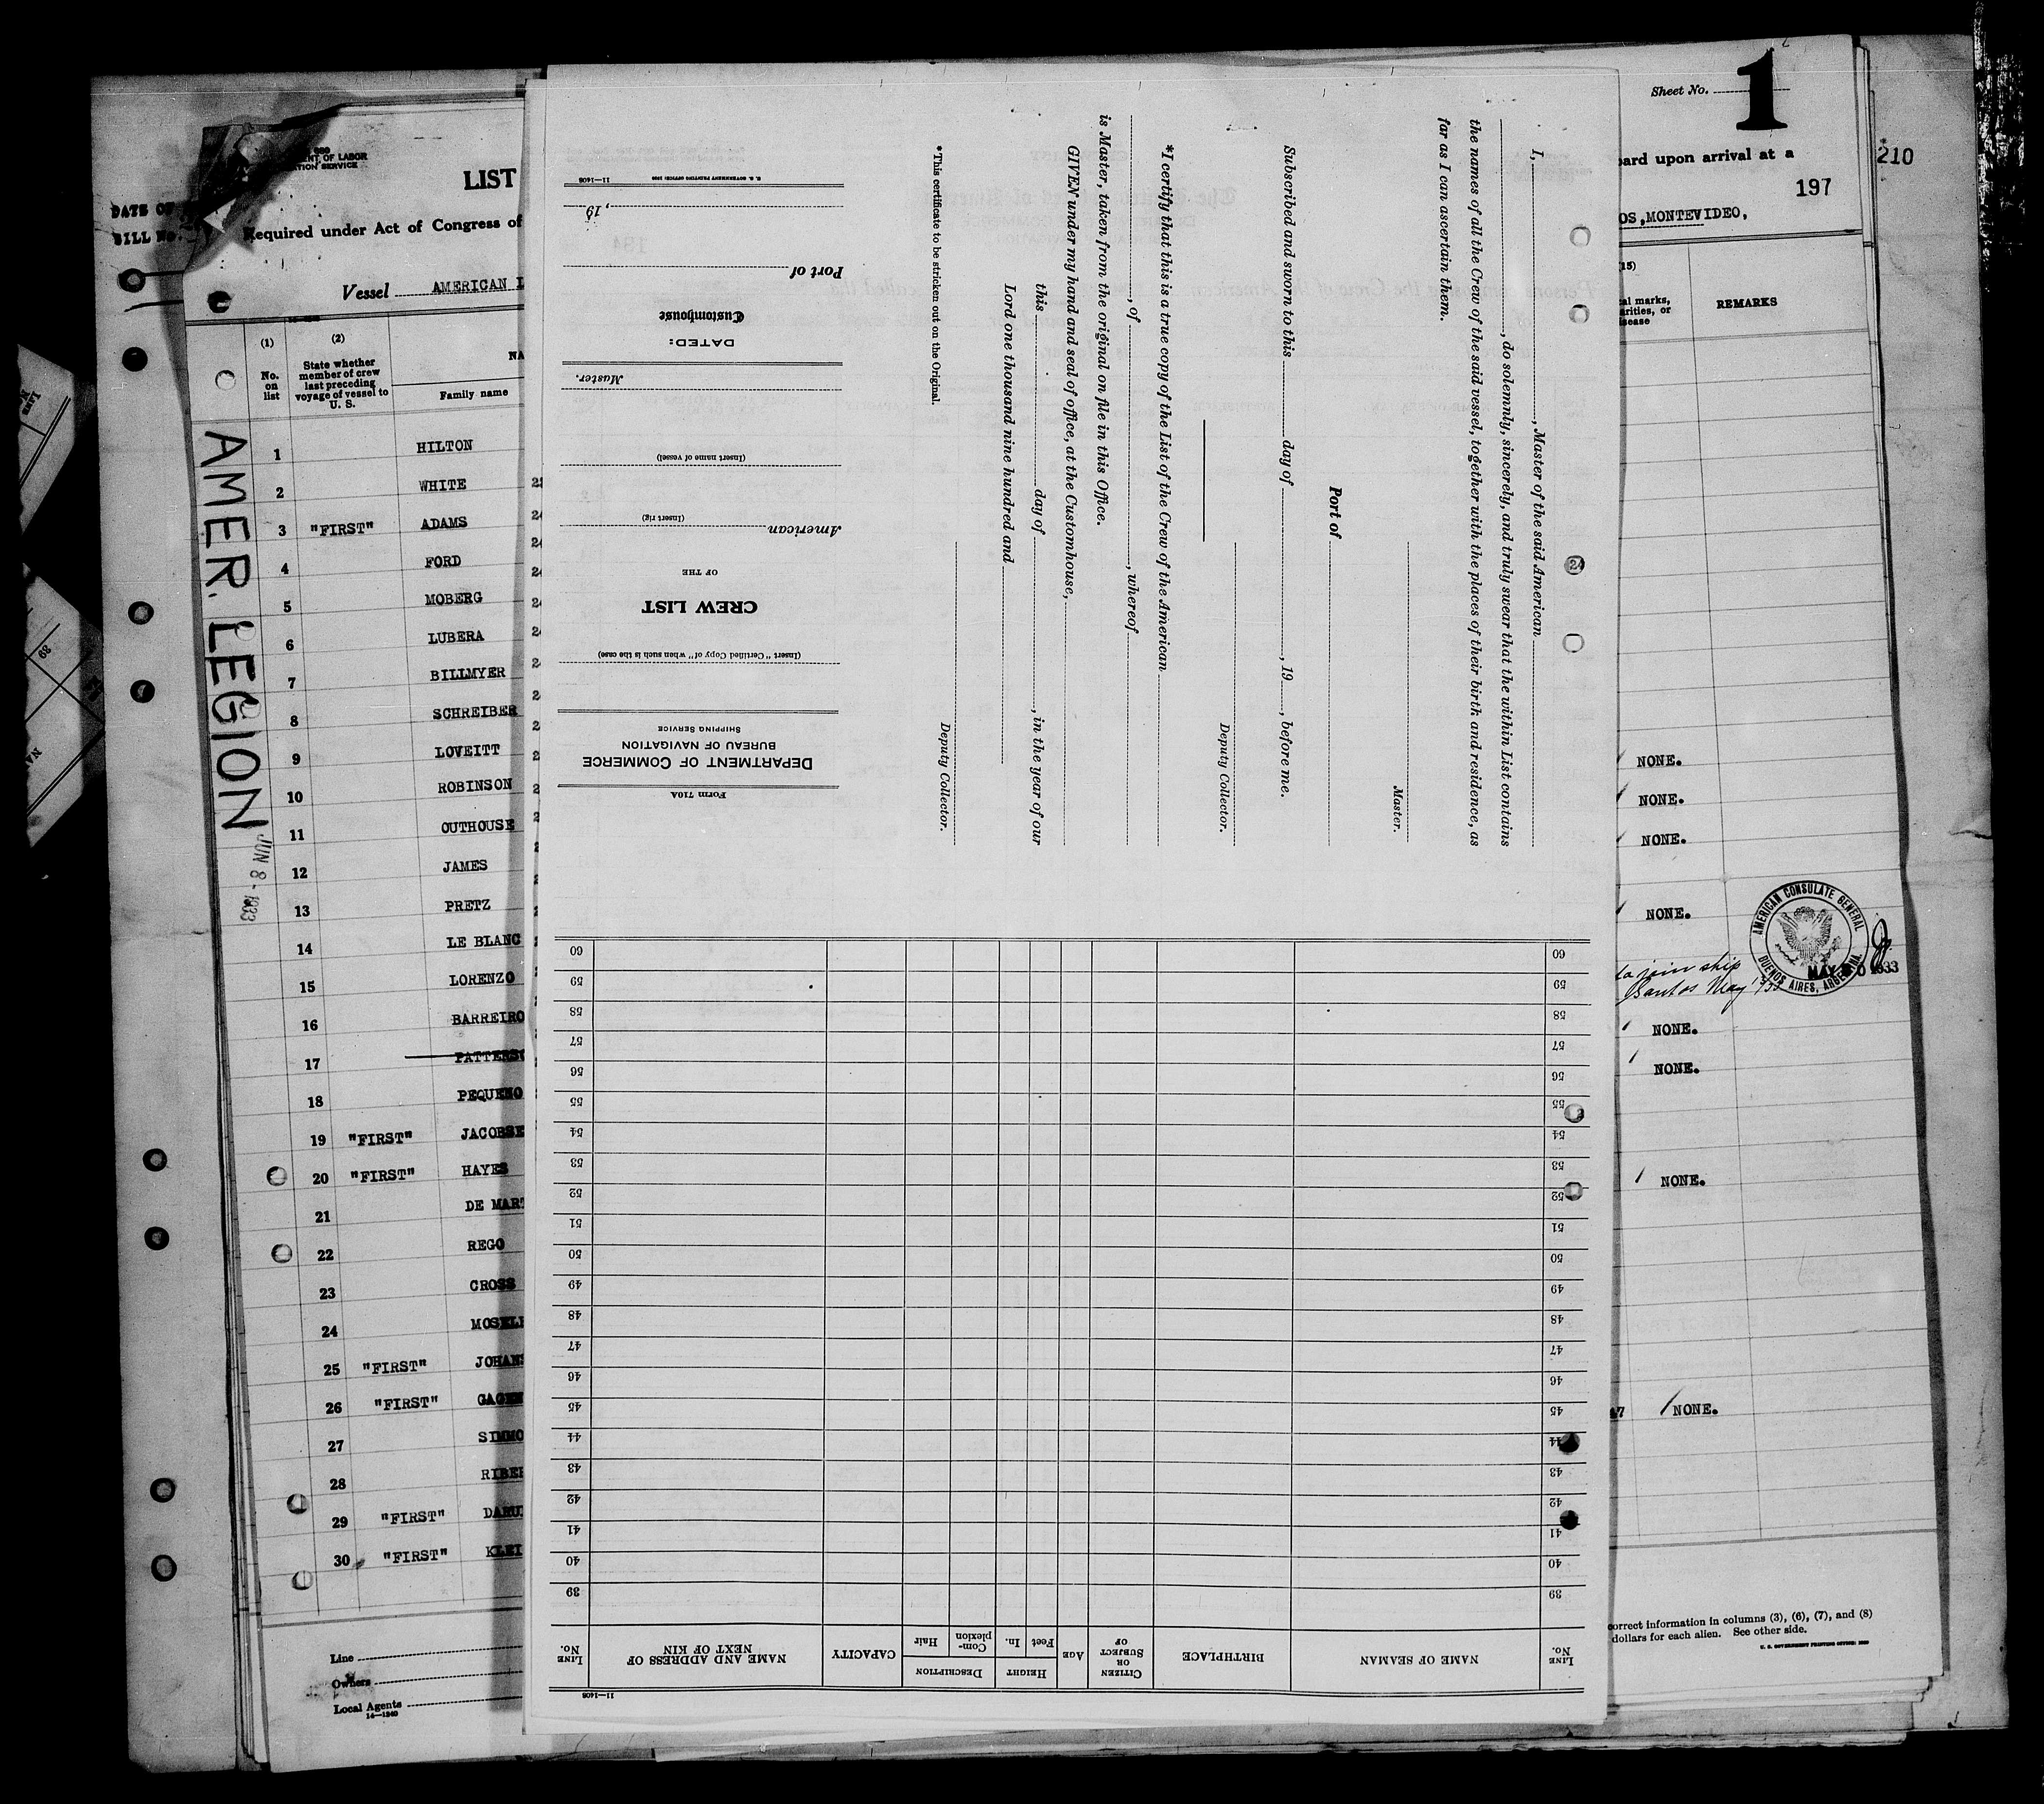 680
ENT OF LABOR
TION SERVICE
LIST
DATE OF
BILL No.
Required under Act of Congress of
Vessel AMERICAN L
(1)
No. on list
(2)
State whether member of crew last preceding voyage of vessel to U. S.
NA
Family name
1 HILTON
2 WHITE
3 "FIRST" ADAMS
4 FORD
5 MOBERG
6 LUBERA
7 BILLMYER
8 SCHREIBER
9 LOVEITT
10 ROBINSON
11 OUTHOUSE
12 JAMES
13 PRETZ
14 LE BLANC
15 LORENZO
16 BARREIRO
17 PATTERSO
18 PEQUENO
19 "FIRST" JACOBSE
20 "FIRST" HAYES
21 DE MART
22 REGO
23 CROSS
24 MOSELE
25 "FIRST" JOHANS
26 "FIRST" GAGEN
27 SIMMO
28 RIBEI
29 "FIRST" DAMU
30 "FIRST" KLEI
AMER. LEGION
JUN 8 - 1933
Line
Owners
Local Agents
14—1240
I, , Master of the said American
, do solemnly, sincerely, and truly swear that the within List contains
the names of all the Crew of the said vessel, together with the places of their birth and residence, as
far as I can ascertain them.
Master.
Port of
Subscribed and sworn to this day of , 19 , before me.
Deputy Collector.
*I certify that this is a true copy of the List of the Crew of the American
, of , whereof
is Master, taken from the original on file in this Office.
GIVEN under my hand and seal of office, at the Customhouse,
this day of , in the year of our
Lord one thousand nine hundred and
Deputy Collector.
*This certificate to be stricken out on the Original.
Form 710A
DEPARTMENT OF COMMERCE
BUREAU OF NAVIGATION
SHIPPING SERVICE
(Insert "Certified Copy of" when such is the case)
CREW LIST
OF THE
American
(Insert rig)
(Insert name of vessel)
Master.
DATED:
Customhouse
Port of
, 19
U. S. GOVERNMENT PRINTING OFFICE: 1930 11—1408
11—1408
LINE No.
NAME OF SEAMAN
BIRTHPLACE
CITIZEN OR SUBJECT OF
AGE
HEIGHT
Feet
In.
DESCRIPTION
Complexion
Hair
CAPACITY
NAME AND ADDRESS OF NEXT OF KIN
LINE No.
39 39
40 40
41 41
42 42
43 43
44 44
45 45
46 46
47 47
48 48
49 49
50 50
51 51
52 52
53 53
54 54
55 55
56 56
57 57
58 58
59 59
60 60
Sheet No. 1
oard upon arrival at a
197
210
OS, MONTEVIDEO,
(15)
al marks, arities, or isease
REMARKS
NONE.
NONE.
NONE.
NONE.
to join ship
Santos May
AMERICAN CONSULATE GENERAL
BUENOS AIRES, ARGENTINA
MAY 1933
NONE.
NONE.
NONE.
47 NONE.
orrect information in columns (3), (6), (7), and (8)
dollars for each alien. See other side.
U. S. GOVERNMENT PRINTING OFFICE: 1930